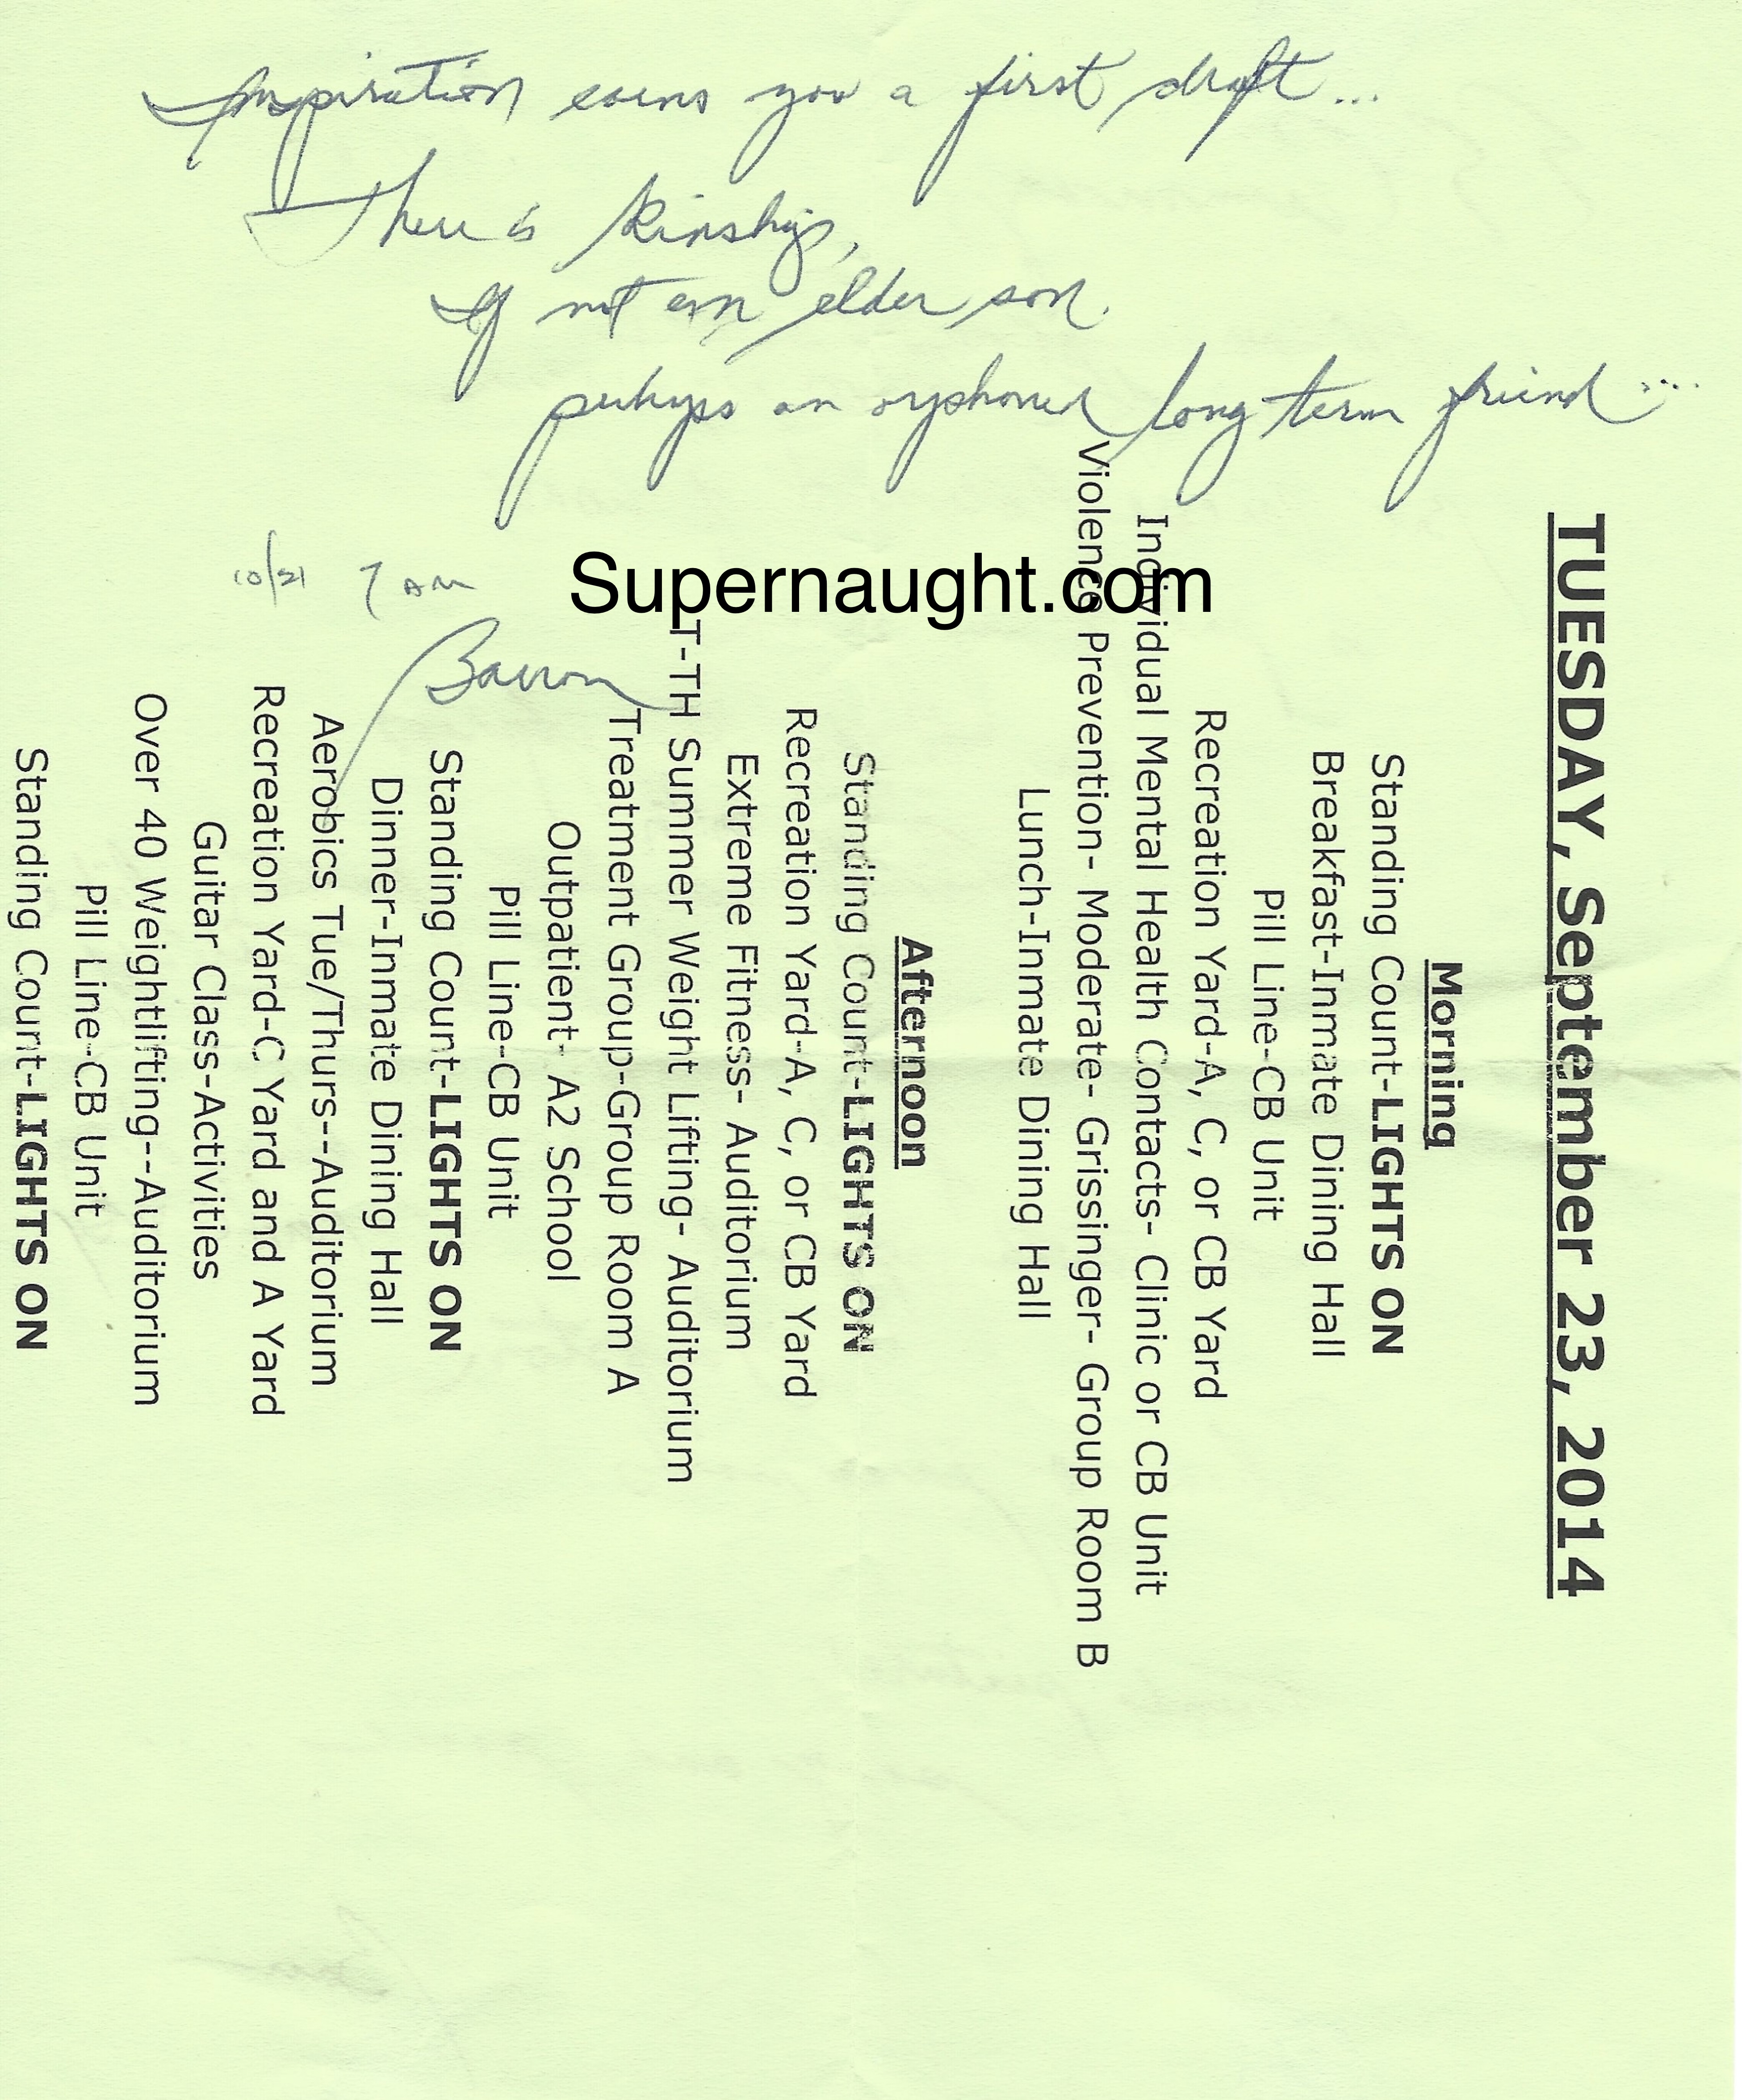 Inspiration earns you a first draft...
There is kinship,
If not an elder son.
perhaps an orphaned long term friend....
10/21 7 AM
Barron
Supernaught.com
TUESDAY, September 23, 2014
Morning
Standing Count-LIGHTS ON
Breakfast-Inmate Dining Hall
Pill Line-CB Unit
Recreation Yard-A, C, or CB Yard
Individual Mental Health Contacts- Clinic or CB Unit
Violence Prevention- Moderate- Grissinger- Group Room B
Lunch-Inmate Dining Hall
Afternoon
Standing Count-LIGHTS ON
Recreation Yard-A, C, or CB Yard
Extreme Fitness- Auditorium
T-TH Summer Weight Lifting- Auditorium
Treatment Group-Group Room A
Outpatient- A2 School
Pill Line-CB Unit
Standing Count-LIGHTS ON
Dinner-Inmate Dining Hall
Aerobics Tue/Thurs--Auditorium
Recreation Yard-C Yard and A Yard
Guitar Class-Activities
Over 40 Weightlifting--Auditorium
Pill Line-CB Unit
Standing Count-LIGHTS ON